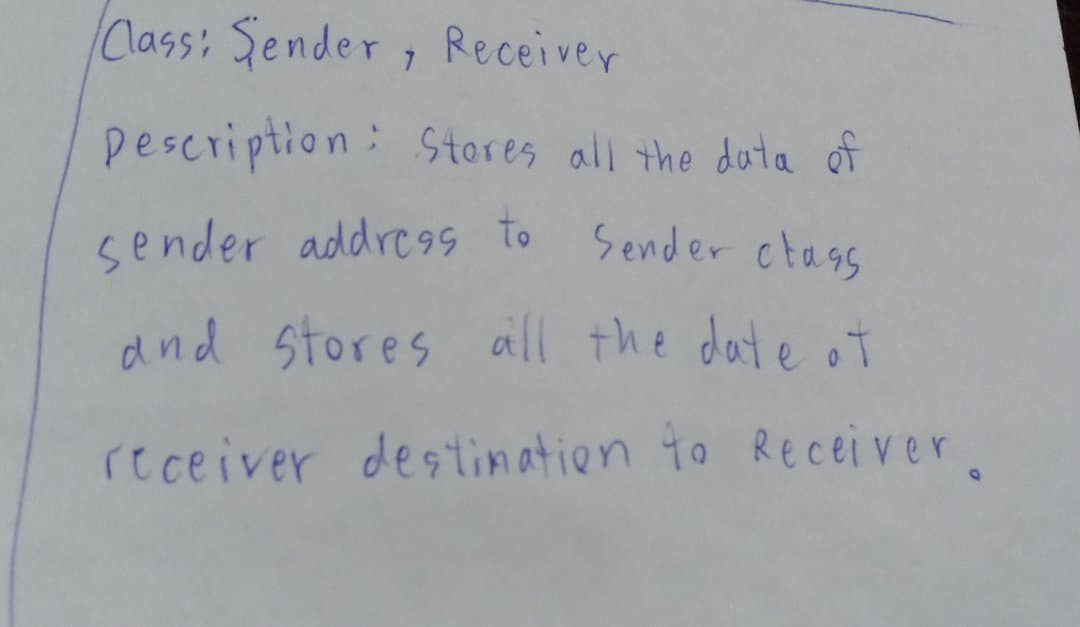 Class: Sender, Receiver
Description: Stores all the data of
sender address to Sender class
and stores all the date of
receiver destination to Receiver.